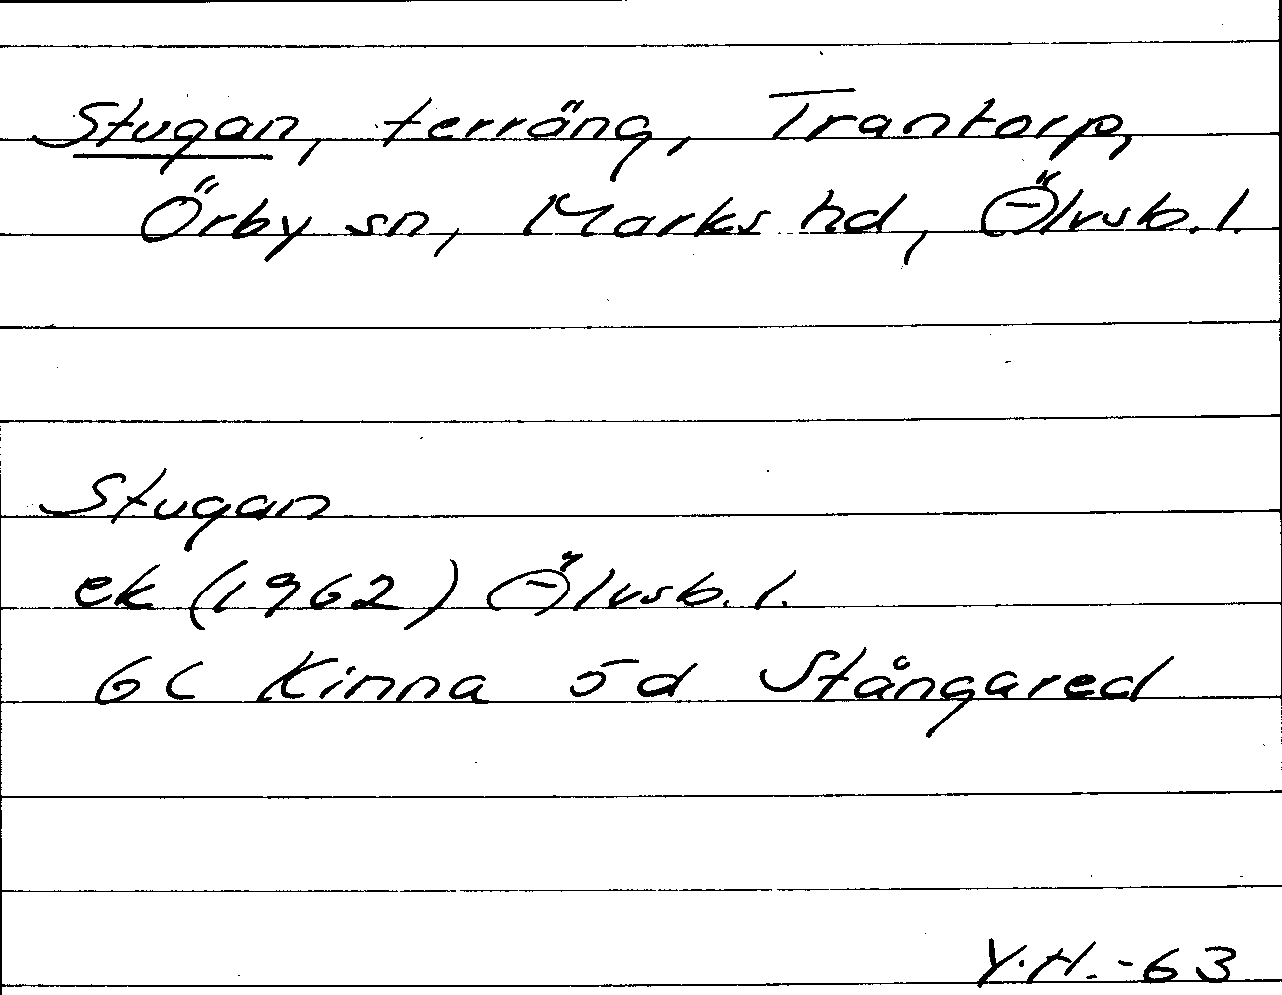 Stugan, terräng, Trantorp,
Örby sn, Marks hd, Älvsb. l.
Stugan
ek (1962) Älvsb. l.
6C Kinna 5d Stångared
Y.H. -63